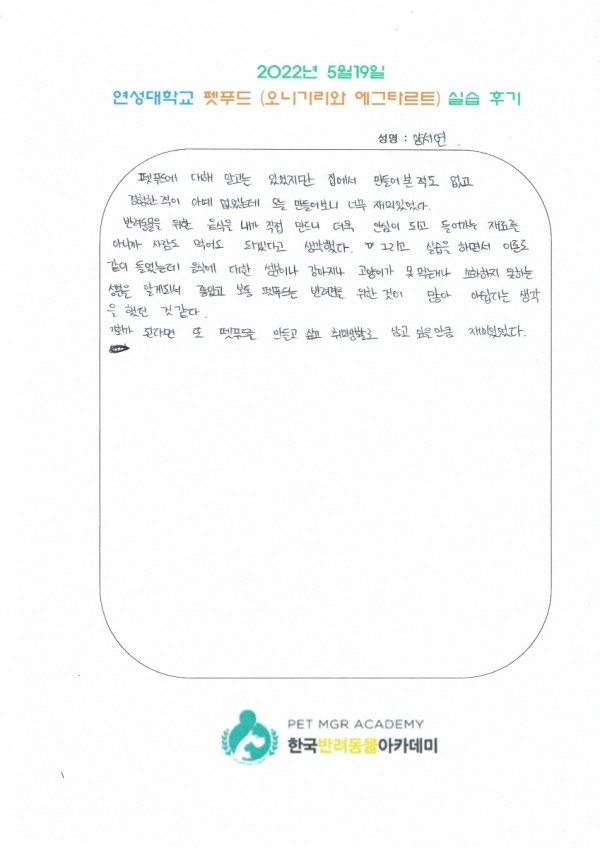 2022년 5월19일
연성대학교 펫푸드 (오니기리와 에그타르트) 실습 후기
성명 : 임서연
펫푸드에 대해 알고는 있었지만 집에서 만들어 본 적도 없고
경험한 적이 아예 없었는데 오늘 만들어보니 너무 재미있었다.
반려동물을 위한 음식을 내가 직접 만드니 더욱 안심이 되고 들어가는 재료를
아니까 사람도 먹어도 되겠다고 생각했다. 그리고 실습을 하면서 이론도
같이 들었는데 음식에 대한 성분이나 강아지나 고양이가 못 먹는거나 소화하지 못하는
성분을 알게되서 좋았고 보통 펫푸드는 반려견을 위한 것이 많아 아쉽다는 생각
을 했던 것 같다.
기회가 된다면 또 펫푸드를 만들고 싶고 취미생활로 삼고 싶을 만큼 재미있었다.
PET MGR ACADEMY
한국반려동물아카데미